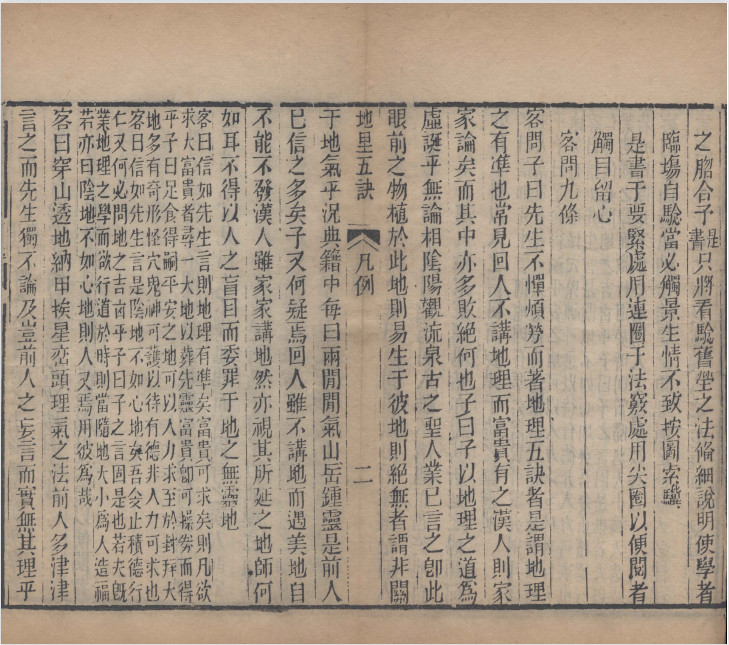 之脗合予是書只將看驗舊塋之法條細說明使學者
臨塲自驗當必觸景生情不致按圖索驥
是書于要緊處用連圈于法竅處用尖圈以便閱者
觸目留心
客問九條
客問子曰先生不憚煩勞而著地理五訣者是謂地理
之有準也常見回人不講地理而富貴有之漢人則家
家論矣而其中亦多敗絕何也子曰子以地理之道為
虛誕乎無論相陰陽觀流泉古之聖人業已言之卽此
眼前之物植於此地則易生于彼地則絕無者謂非關
地里五訣 凡例 二
于地氣乎況典籍中每曰兩間間氣山岳鍾靈是前人
已信之多矣子又何疑焉回人雖不講地而遇美地自
不能不發漢人雖家家講地然亦視其所延之地師何
如耳不得以人之盲目而委罪于地之無靈也
客曰信如先生言則地理有準矣富貴可求矣則凡欲
求大富貴者尋一大地以葬先靈富貴卽可操劵而得
乎子曰足食得嗣平安之地可以人力求至於封拜大
地多有奇形怪穴鬼神可護以待有德非人力可求也
客曰信如先生言是陰地不如心地矣吾爻止積德行
仁又何必問地之吉凶乎子曰子之言固是也若夫旣
業地理之學而欲行道於時則當隨地大小為人造福
若亦曰陰地不如心地則人又焉用彼為哉
客曰穿山透地納甲挨星巒頭理氣之法前人多津津
言之而先生獨不論及豈前人之妄言而實無其理乎